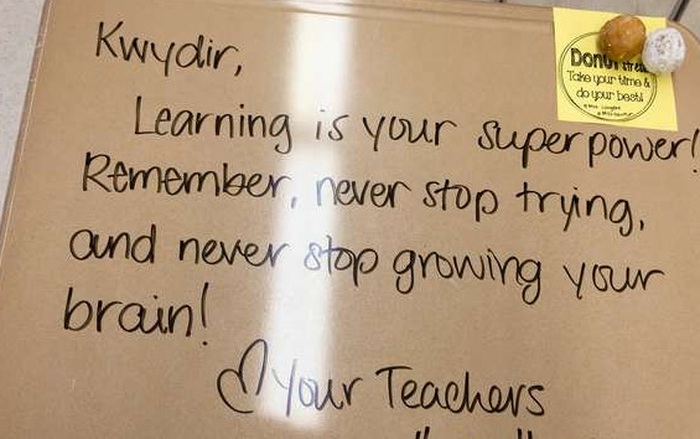 Kwydir,
Learning is your superpower!
Remember, never stop trying,
and never stop growing your
brain!
♡ Your Teachers
Donut stress
Take your time &
do your best!